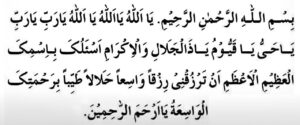 بِسْمِ اللّٰهِ الرَّحْمٰنِ الرَّحِيْمِ. يَا اَللّٰهُ يَااَللّٰهُ يَا اَللّٰهُ يَارَبِّ يَارَبِّ
يَاحَىُّ يَا قَيُّوْمُ يَاذَالْجَلَالِ وَالْاِكْرَامِ اَسْئَلُكَ بِاسْمِكَ
الْعَظِيْمِ الْاَعْظَمِ اَنْ تَرْزُقَنِيْ رِزْقًا وَاسِعاً حَلَالاً طَيِّباً بِرَحْمَتِكَ
الْوَاسِعَةِ يَااَرْحَمَ الرّٰحِمِيْنَ.